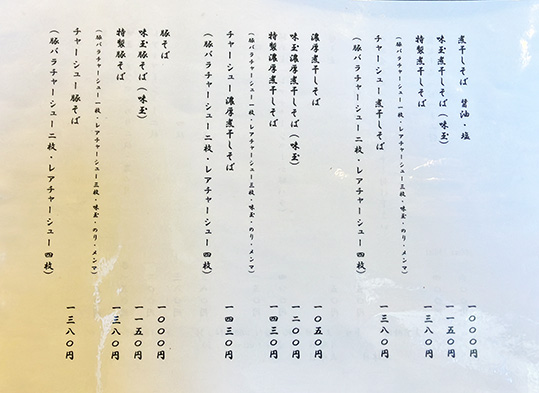 煮干しそば　醤油・塩　一〇〇〇円
味玉煮干しそば（味玉）　一一五〇円
特製煮干しそば　一三八〇円
（豚バラチャーシュー一枚・レアチャーシュー三枚・味玉・のり・メンマ）
チャーシュー煮干しそば　一三八〇円
（豚バラチャーシュー二枚・レアチャーシュー四枚）
濃厚煮干しそば　一〇五〇円
味玉濃厚煮干しそば（味玉）　一二〇〇円
特製濃厚煮干しそば　一四三〇円
（豚バラチャーシュー一枚・レアチャーシュー三枚・味玉・のり・メンマ）
チャーシュー濃厚煮干しそば　一四三〇円
（豚バラチャーシュー二枚・レアチャーシュー四枚）
豚そば　一〇〇〇円
味玉豚そば（味玉）　一一五〇円
特製豚そば　一三八〇円
（豚バラチャーシュー一枚・レアチャーシュー三枚・味玉・のり・メンマ）
チャーシュー豚そば　一三八〇円
（豚バラチャーシュー二枚・レアチャーシュー四枚）